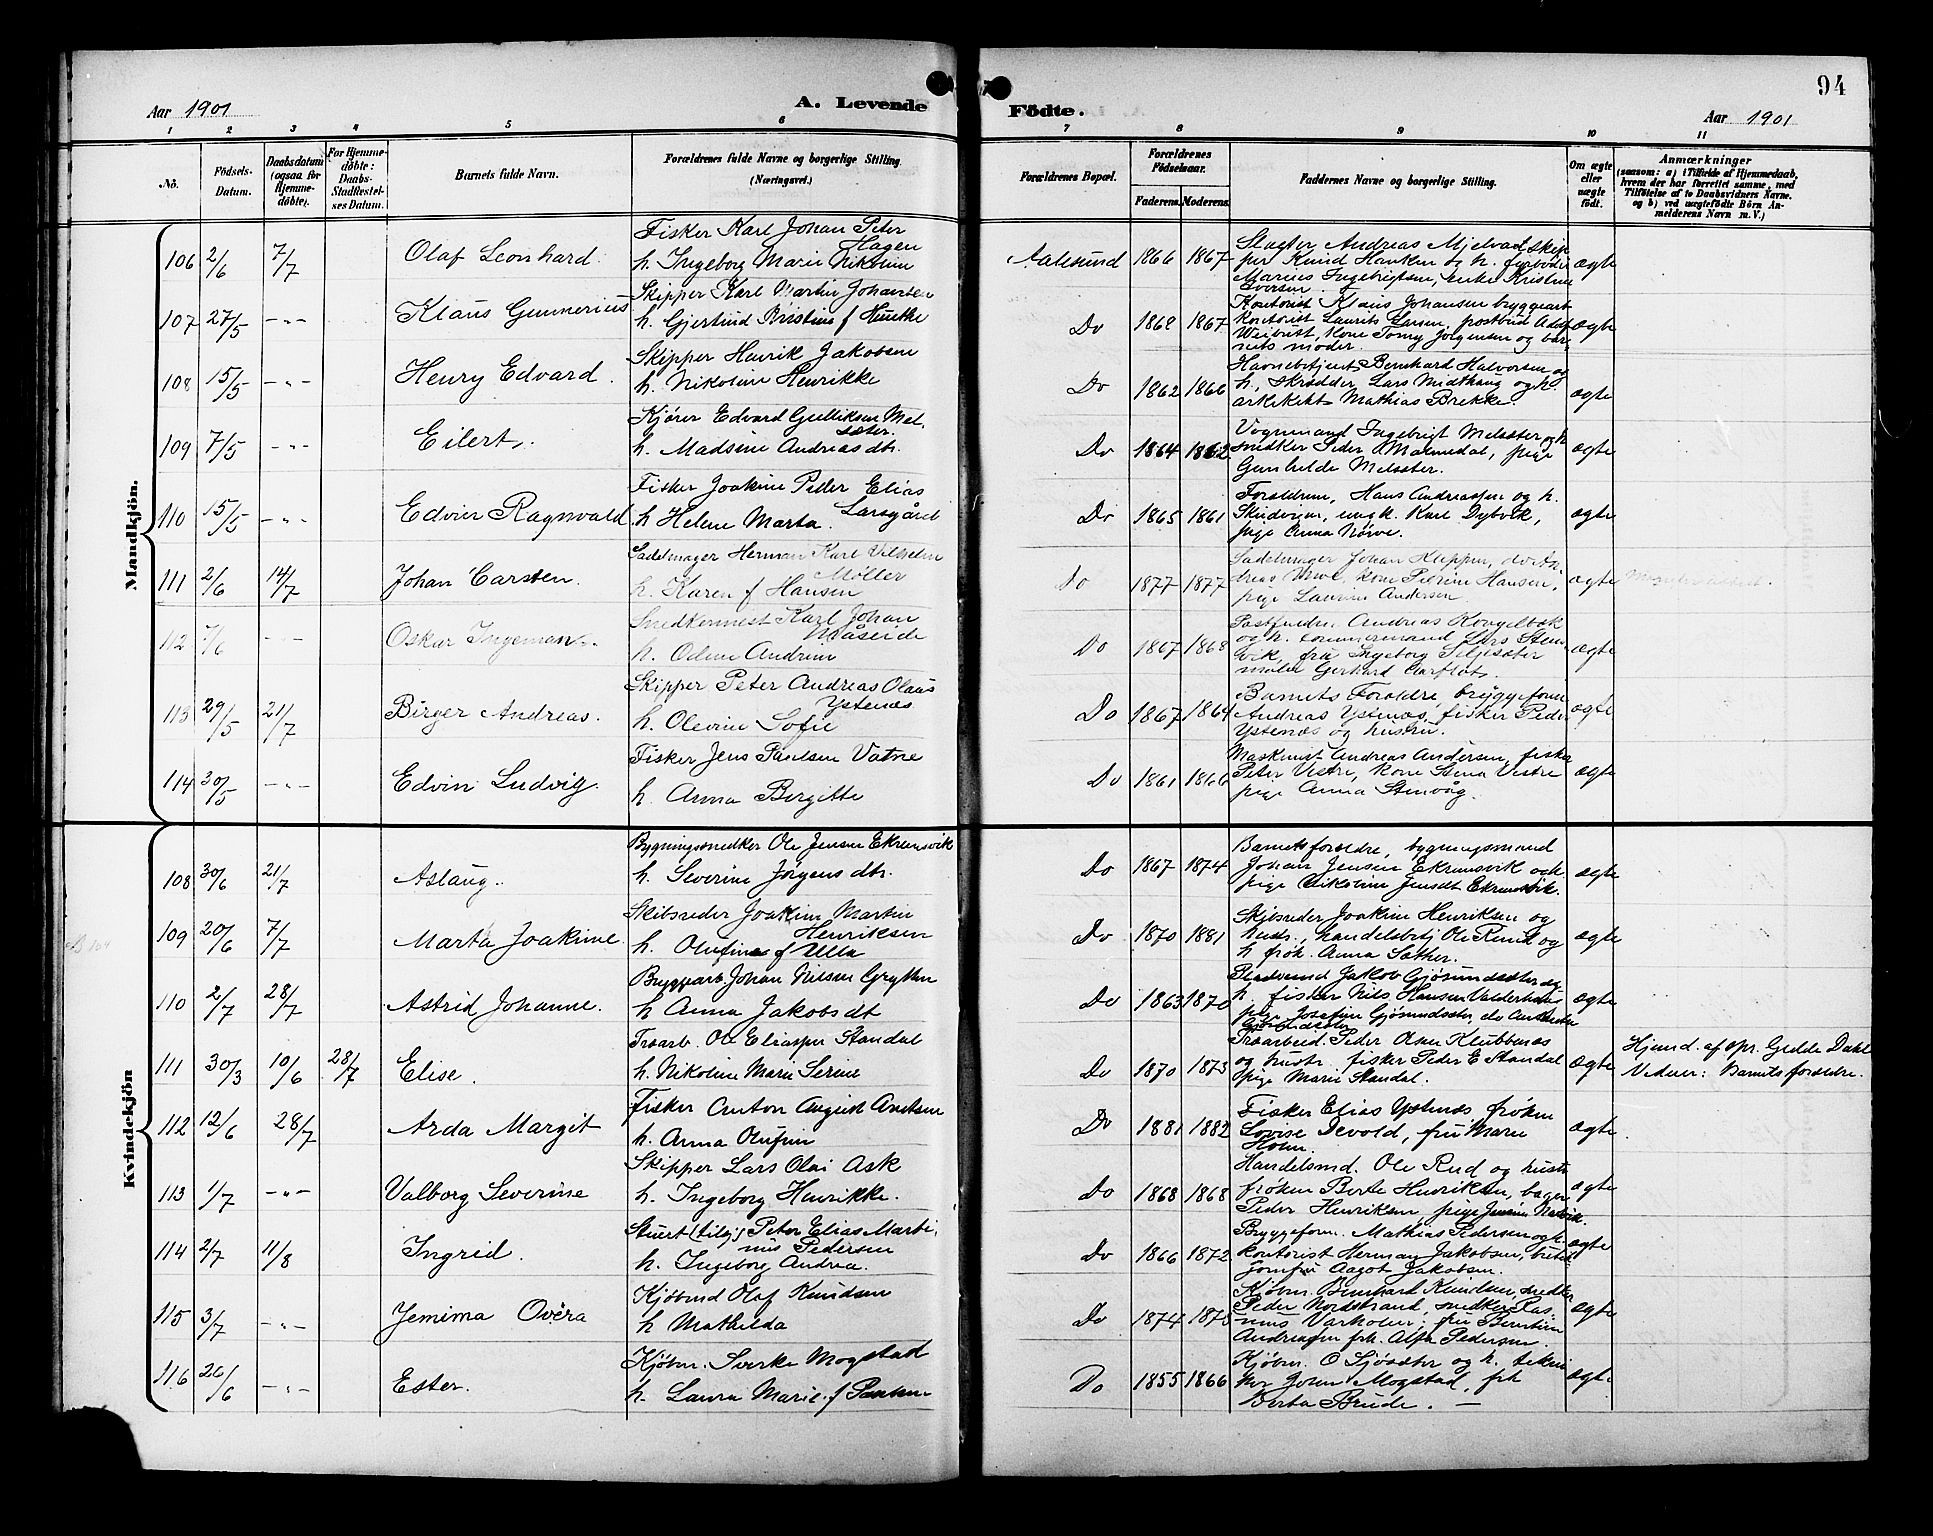 94
Aar 1901
A. Levende
Födte.
Aar 1901
1 2 3 4 5 6 7 8 9 10 11
No.
Födsels-Datum.
Daabsdatum (ogsaa for Hjemmedöbte).
For Hjemmedöbte: Daabs-Stadfæstelses Datum.
Barnets fulde Navn.
Forældrenes fulde Navne og borgerlige Stilling. (Næringsvei.)
Forældrenes Bopæl.
Forældrenes Födselsaar.
Faderens. Moderens.
Faddernes Navne og borgerlige Stilling.
Om ægte eller uægte födt.
Anmærkninger
(saasom: a) i Tilfælde af Hjemmedaab, hvem der har forrettet samme, med Tilföielse af to Daabsvidners Navne. og b) ved uægtefödte Börn Anmelderens Navn m. V.)
Mandkjön.
106 2/6 7/7 Olaf Leonhard
Fisker Karl Johan Peter Hagen
h. Ingeborg Marie
Aalesund 1866 1867
Slagter Andreas
ægte
107 27/5 -"- Klaus Gunnerius
Skipper Karl Martin Johansen
h. Gjertrud
Do 1867
Kontorist Klaus Johansen
kontorist Laurits Larsen, postbud
kone Tomy Jørgensen og bar
nets moder.
ægte
108 15/5 -"- Henry Edvard.
Skipper Henrik Jakobsen
h. Nikoline Henrikke
Do 1862 1866
Havnebetjent Bernhard Halvorsen og
h, skrædder Lars Midthaug og h.
arkitekt Mathias Brekke.
ægte
109 7/5 -"- Eilert.
Kjører Edvard Gulliksen Mel
sæter.
h. Madsine Andreasdtr.
Do 1864 1862
Vognmand Ingebrigt Melsæter og h
snedker Peder Malmedal, pige
Gunhilde Melsæter.
ægte
110 15/5 -"- Edvin Ragnvald
Fisker Joakim Peder Elias
Larsgård
h Helene Marta.
Do 1865 1861
Forældrene, Hans Andreassen og h.
ungk. Karl Dybvik,
pige Anna Nørve.
ægte
111 2/6 14/7 Johan Carsten.
Sadelmager Herman Karl Vilhelm
Møller
h. Karen f Hansen
Do 1877 1877
Sadelmager Johan
kone Petrine Hansen,
pige Laurine Andersen.
ægte
112 7/6 -"- Oskar Ingeman.
Snedkermest Karl Johan
Måseide
h. Odine Andrine
Do 1867 1868
Andreas Kongelbæk
og h. tømmermand Lars Sten
vik, frk Ingeborg
maler Gerhard
ægte
113 29/5 21/7 Birger Andreas.
Skipper Peter Andreas Olaus
Ystenæs
h. Olevine Sofie
Do 1867 1864
Barnets Forældre, bryggeform
Andreas Ystenæs, fisker Peder
Ystenæs og hustru.
ægte
114 30/5 -"- Edvin Ludvig.
Fisker Jens Paulsen Vatne
h. Anna Bergitte
Do 1861 1866
Maskinist Andreas Andersen, fisker
Peter Vestre, kone Stina Vestre
pige Anna Stenvåg.
ægte
Kvindekjön
108 30/6 21/7 Aslaug.
Bygningssnedker Ole Jensen Ekremsvik
h. Severine Jørgensdtr.
Do 1867 1874
Barnetsforældre, bygningsmand
Johan Jensen Ekremsvik og h.
pige Nikoline Jensdt Ekremsvik.
ægte
109 20/6 7/7 Marta Joakime.
Skibsreder Joakim Martin
Henriksen
h. Olufine f Ulla
Do 1870 1881
Skibsreder Joakim Henriksen og
hustr., handelsbetj Ole Rund og
h frøk. Anna Sæther.
ægte
110 2/7 28/7 Astrid Johanne.
Bryggearb. Johan Nilsen Grytten
h Anna Jakobsdt
Do 1863 1870
Jakob Gjøsundsæter og
h. fisker Nils Hansen Valderhaug
pige Josefine Gjøsundsæter,
ægte
111 30/3 10/6 28/7 Elise.
Træarb. Ole Eliassen Standal
h. Nikoline Marie Serine
Do 1870 1873
Træarbeid. Peder Olsen Klubbenæs
og hustr. fisker Peder E Standal
pige Marie Standal.
ægte
Hjemd. af opr. Gedde Dahl
Vidner: Barnets forældre.
112 12/6 28/7 Arda Margit
Fisker Anton August Amdsen
h. Anna Olufine
Do 1881 1882
Fisker Elias Ystenæs, frøken
Lovise Devold, fru Marie
Holm.
ægte
113 1/7 -"- Valborg Severine
Skipper Lars Olai Ask
h. Ingeborg Henrikke.
Do 1868 1868
Handelsmd. Ole Rud og hustr
frøken Berte Henriksen, bager
Peder Henriksen pige Jensine
ægte
114 2/7 11/8 Ingrid.
Stuert (tilsj) Peter Elias Marti
nus Pedersen
h. Ingeborg Andrea.
Do 1866 1872
Bryggeform. Mathias Pedersen og h.
kontorist Herman Jakobsen,
Jomfru Aagot Jakobsen.
ægte
115 3/7 -"- Jemima Overa
Kjøbmd Olaf Knudsen
h Mathilda
Do 1874 1875
Kjøbm. Bernhard Knudsen, snedker
Peder Nordstrand, snedker Ras
mus Varholm, fru Berntine
Andreasen frk. Alfa Pedersen.
ægte
116 26/6 -"- Ester.
Kjøbm. Sverke Mogstad
h. Laura Marie f
Do 1855 1866
Kjøbm. O Sjøsæter og h.
John Mogstad, frk
Berta Brude. —
ægte.